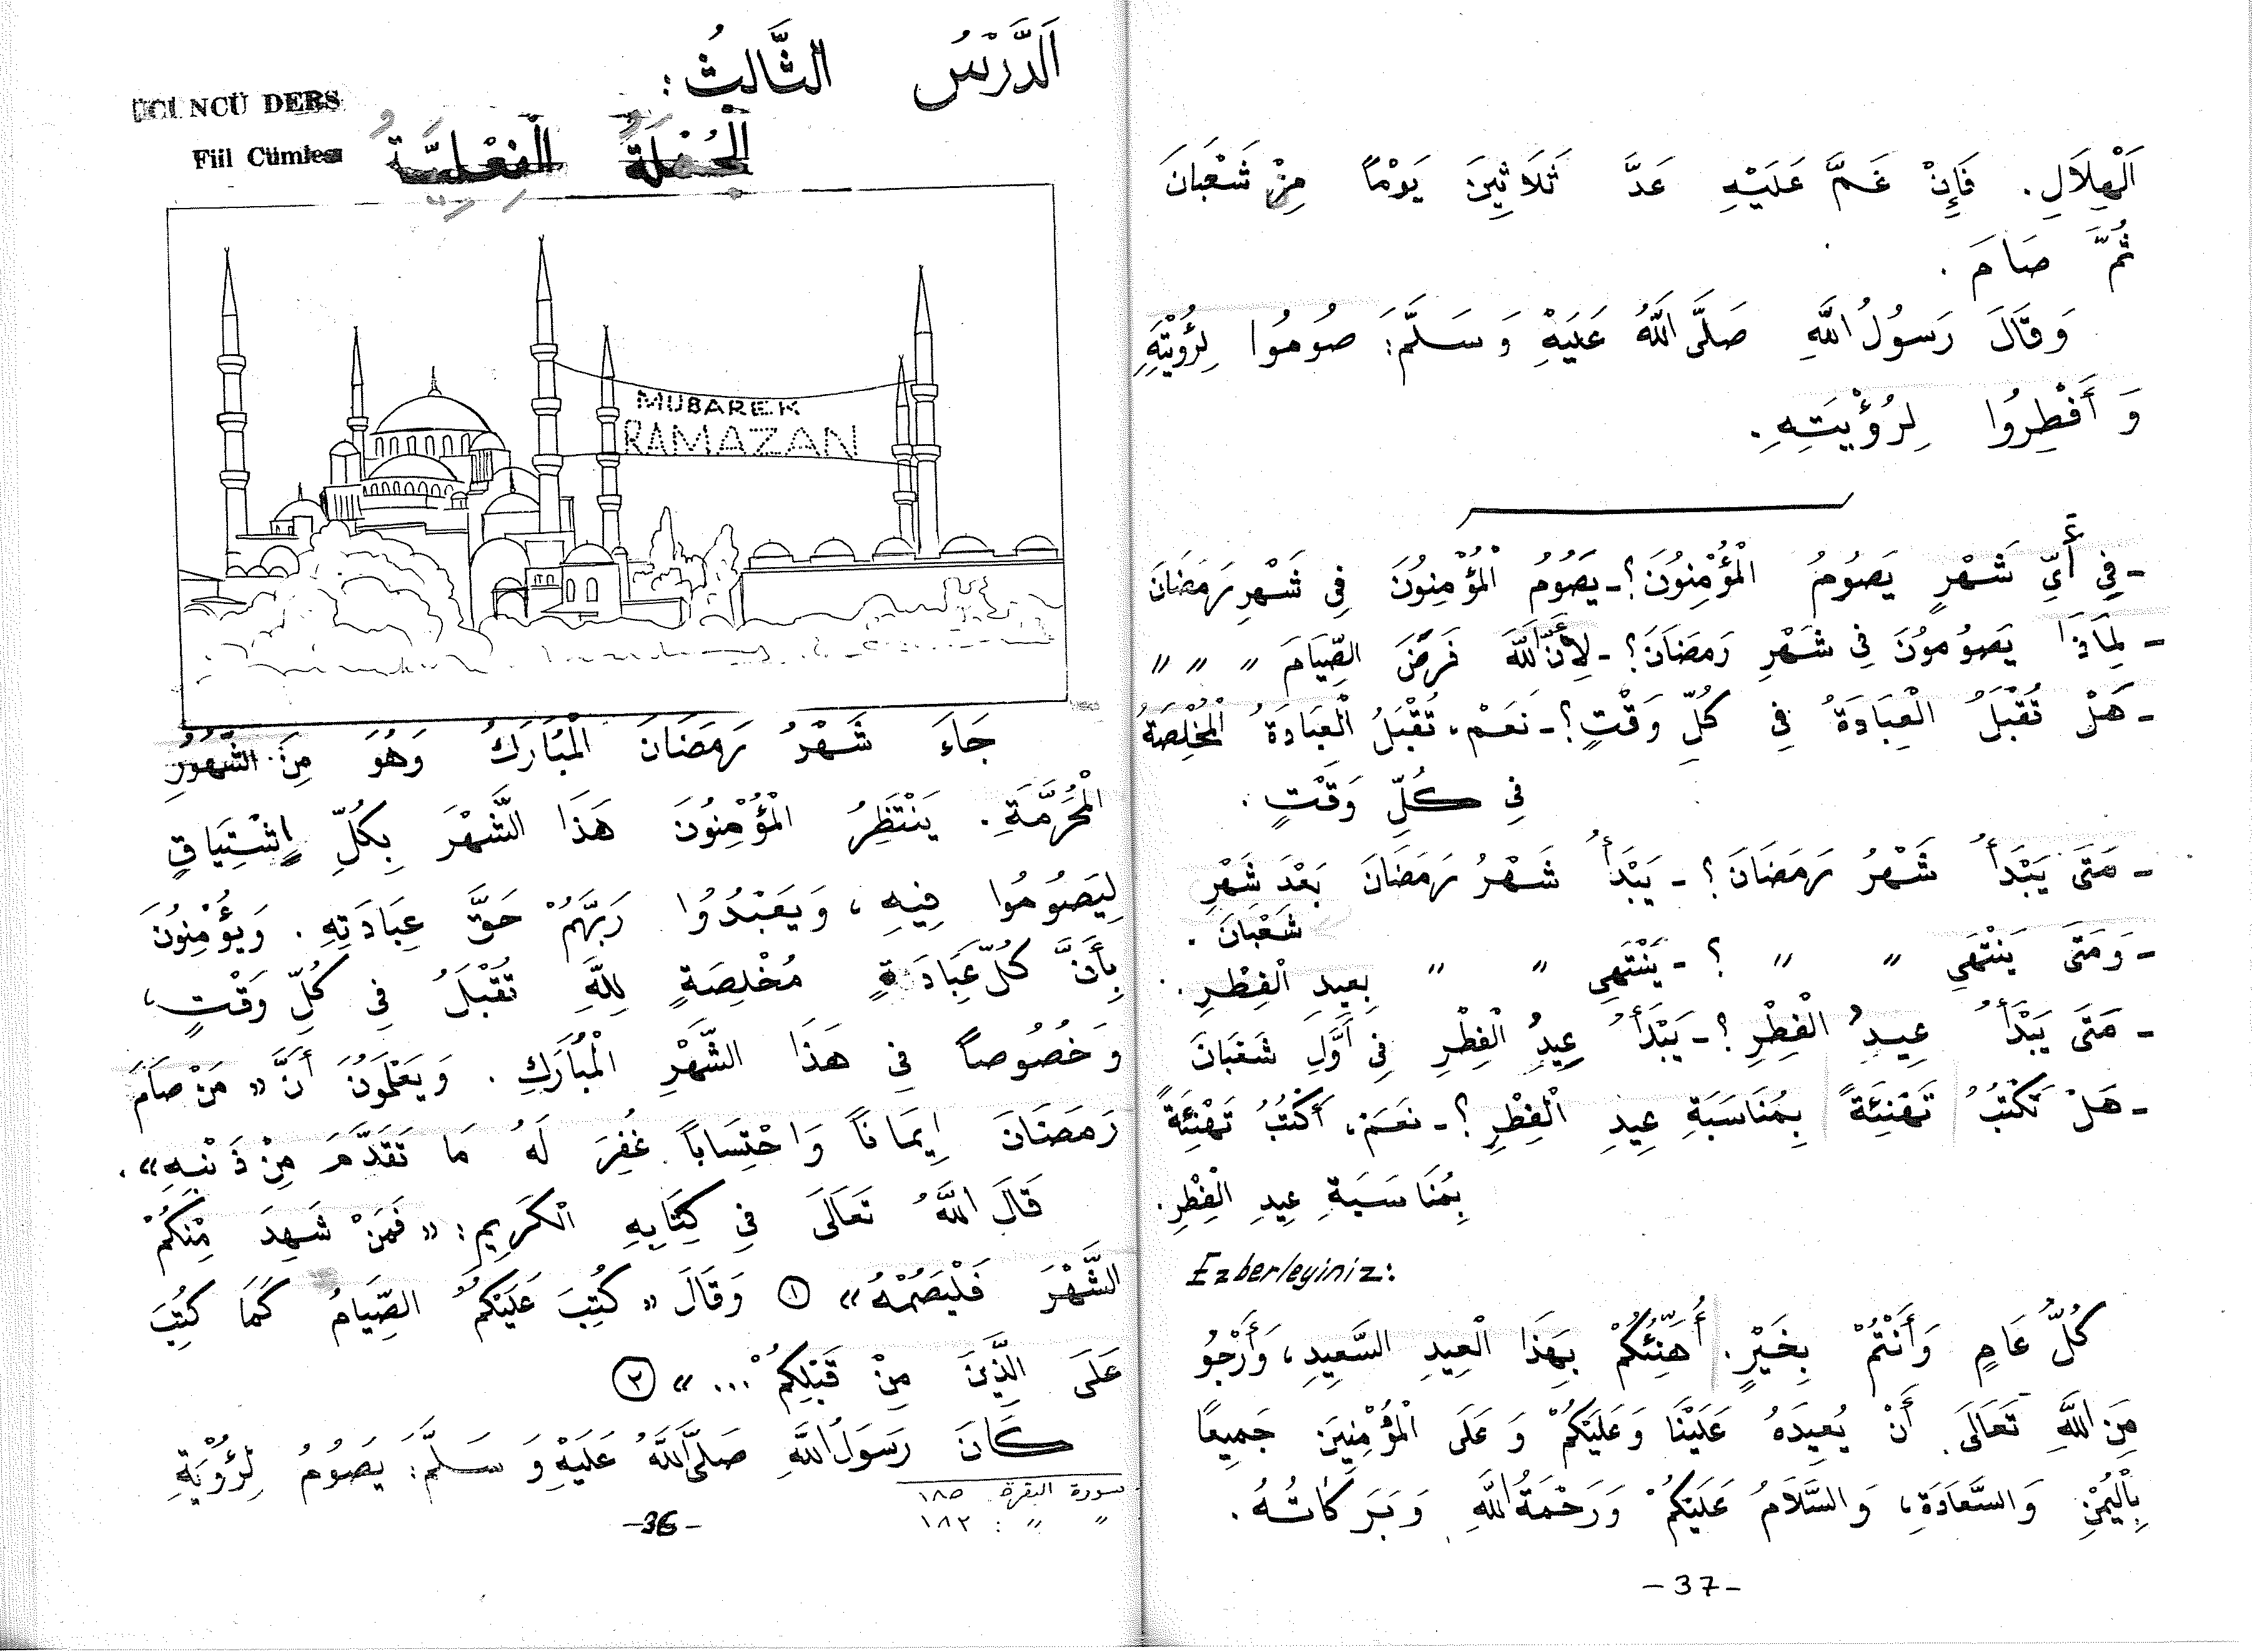 اَلدَّرْسُ الثَّالِثُ:
ÜÇÜNCÜ DERS
اَلْجُمْلَةُ الْفِعْلِيَّةُ
Fiil Cümlesi
MÜBAREK
RAMAZAN
جَاءَ شَهْرُ رَمَضَانَ الْمُبَارَكُ وَهُوَ مِنَ الشُّهُورِ
الْمُحَرَّمَةِ. يَنْتَظِرُ الْمُؤْمِنُونَ هَذَا الشَّهْرَ بِكُلِّ اِشْتِيَاقٍ
لِيَصُومُوا فِيهِ، وَيَعْبُدُوا رَبَّهُمْ حَقَّ عِبَادَتِهِ. وَيُؤْمِنُونَ
بِأَنَّ كُلَّ عِبَادَةٍ مُخْلِصَةٍ لِلَّهِ تُقْبَلُ فِي كُلِّ وَقْتٍ،
وَخُصُوصاً فِي هَذَا الشَّهْرِ الْمُبَارَكِ. وَيَعْلَمُونَ أَنَّ «مَنْ صَامَ
رَمَضَانَ إِيمَاناً وَاحْتِسَاباً غُفِرَ لَهُ مَا تَقَدَّمَ مِنْ ذَنْبِهِ».
قَالَ اللَّهُ تَعَالَى فِي كِتَابِهِ الْكَرِيمِ: «فَمَنْ شَهِدَ مِنْكُمُ
الشَّهْرَ فَلْيَصُمْهُ» ① وَقَالَ «كُتِبَ عَلَيْكُمُ الصِّيَامُ كَمَا كُتِبَ
عَلَى الَّذِينَ مِنْ قَبْلِكُمْ...» ②
كَانَ رَسُولُ اللَّهِ صَلَّى اللَّهُ عَلَيْهِ وَسَلَّمَ: يَصُومُ لِرُؤْيَةِ
سورة البقرة ١٨٥
〃 〃 : ١٨٢
-36-
اَلْهِلَالِ. فَإِنْ غَمَّ عَلَيْهِ عَدَّ ثَلَاثِينَ يَوْمًا مِنْ شَعْبَانَ
ثُمَّ صَامَ.
وَقَالَ رَسُولُ اللَّهِ صَلَّى اللَّهُ عَلَيْهِ وَسَلَّمَ: صُومُوا لِرُؤْيَتِهِ
وَأَفْطِرُوا لِرُؤْيَتِهِ.
- فِي أَيِّ شَهْرٍ يَصُومُ الْمُؤْمِنُونَ؟ - يَصُومُ الْمُؤْمِنُونَ فِي شَهْرِ رَمَضَانَ
- لِمَاذَا يَصُومُونَ فِي شَهْرِ رَمَضَانَ؟ - لِأَنَّ اللَّهَ فَرَضَ الصِّيَامَ 〃 〃 〃
- هَلْ تُقْبَلُ الْعِبَادَةُ فِي كُلِّ وَقْتٍ؟ - نَعَمْ، تُقْبَلُ الْعِبَادَةُ الْمُخْلِصَةُ
فِي كُلِّ وَقْتٍ.
- مَتَى يَبْدَأُ شَهْرُ رَمَضَانَ؟ - يَبْدَأُ شَهْرُ رَمَضَانَ بَعْدَ شَهْرِ
شَعْبَانَ.
- وَمَتَى يَنْتَهِي 〃 〃 ؟ - يَنْتَهِي 〃 〃 بِعِيدِ الْفِطْرِ.
- مَتَى يَبْدَأُ عِيدُ الْفِطْرِ؟ - يَبْدَأُ عِيدُ الْفِطْرِ فِي أَوَّلِ شَعْبَانَ
- هَلْ تَكْتُبُ تَهْنِئَةً بِمُنَاسَبَةِ عِيدِ الْفِطْرِ؟ - نَعَمْ، أَكْتُبُ تَهْنِئَةً
بِمُنَاسَبَةِ عِيدِ الْفِطْرِ.
Ezberleyiniz:
كُلُّ عَامٍ وَأَنْتُمْ بِخَيْرٍ. أُهَنِّئُكُمْ بِهَذَا الْعِيدِ السَّعِيدِ، وَأَرْجُو
مِنَ اللَّهِ تَعَالَى أَنْ يُعِيدَهُ عَلَيْنَا وَعَلَيْكُمْ وَعَلَى الْمُؤْمِنِينَ جَمِيعًا
بِالْيُمْنِ وَالسَّعَادَةِ، وَالسَّلَامُ عَلَيْكُمْ وَرَحْمَةُ اللَّهِ وَبَرَكَاتُهُ.
-37-